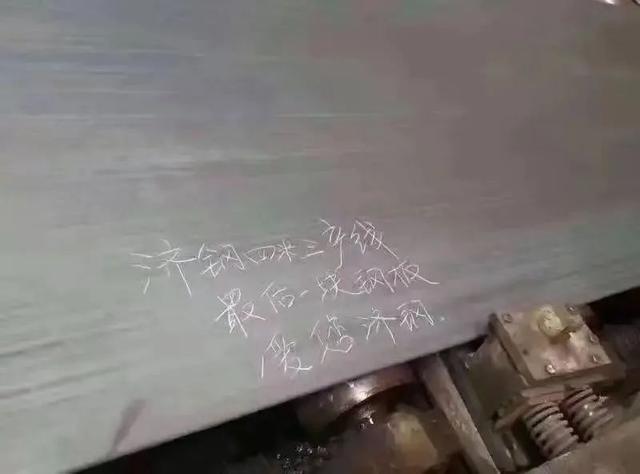 济钢四米三产线
最后一块钢板
爱您济钢.